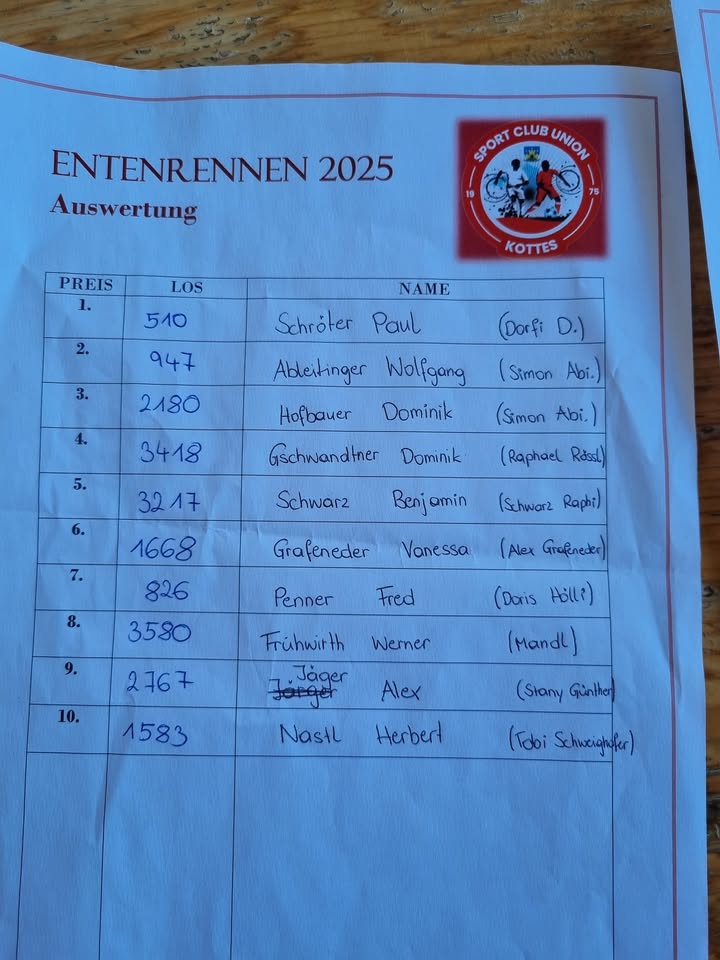 ENTENRENNEN 2025
Auswertung
SPORT CLUB UNION
19 75
KOTTES
PREIS LOS NAME
1. 510 Schröter Paul (Dorfi D.)
2. 947 Ableitinger Wolfgang (Simon Abi.)
3. 2180 Hofbauer Dominik (Simon Abi.)
4. 3418 Gschwandtner Dominik (Raphael Rössl)
5. 3217 Schwarz Benjamin (Schwarz Raphi)
6. 1668 Grafeneder Vanessa (Alex Grafeneder)
7. 826 Penner Fred (Doris Hölli)
8. 3580 Frühwirth Werner (Mandl)
9. 2767 Jäger Alex (Stany Günther)
10. 1583 Nastl Herbert (Tobi Schweighofer)